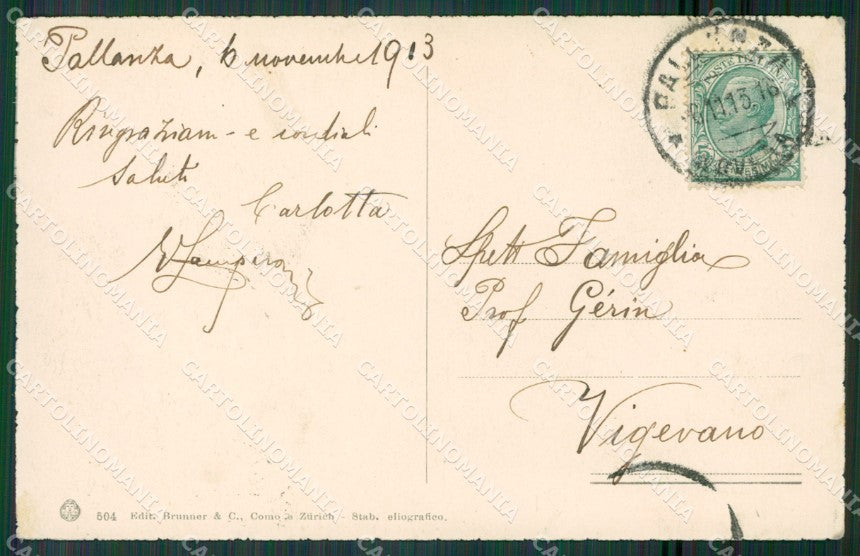 Pallanza, 6 novembre 1913
Ringraziam- e cordiali
saluti
Carlotta
Spett Famiglia
Prof Gérin
Vigevano
PALLANZA
NOVARA
POSTE ITALIANE
504 Edit. Brunner & C., Como e Zürich - Stab. eliografico.
CARTOLINOMANIA